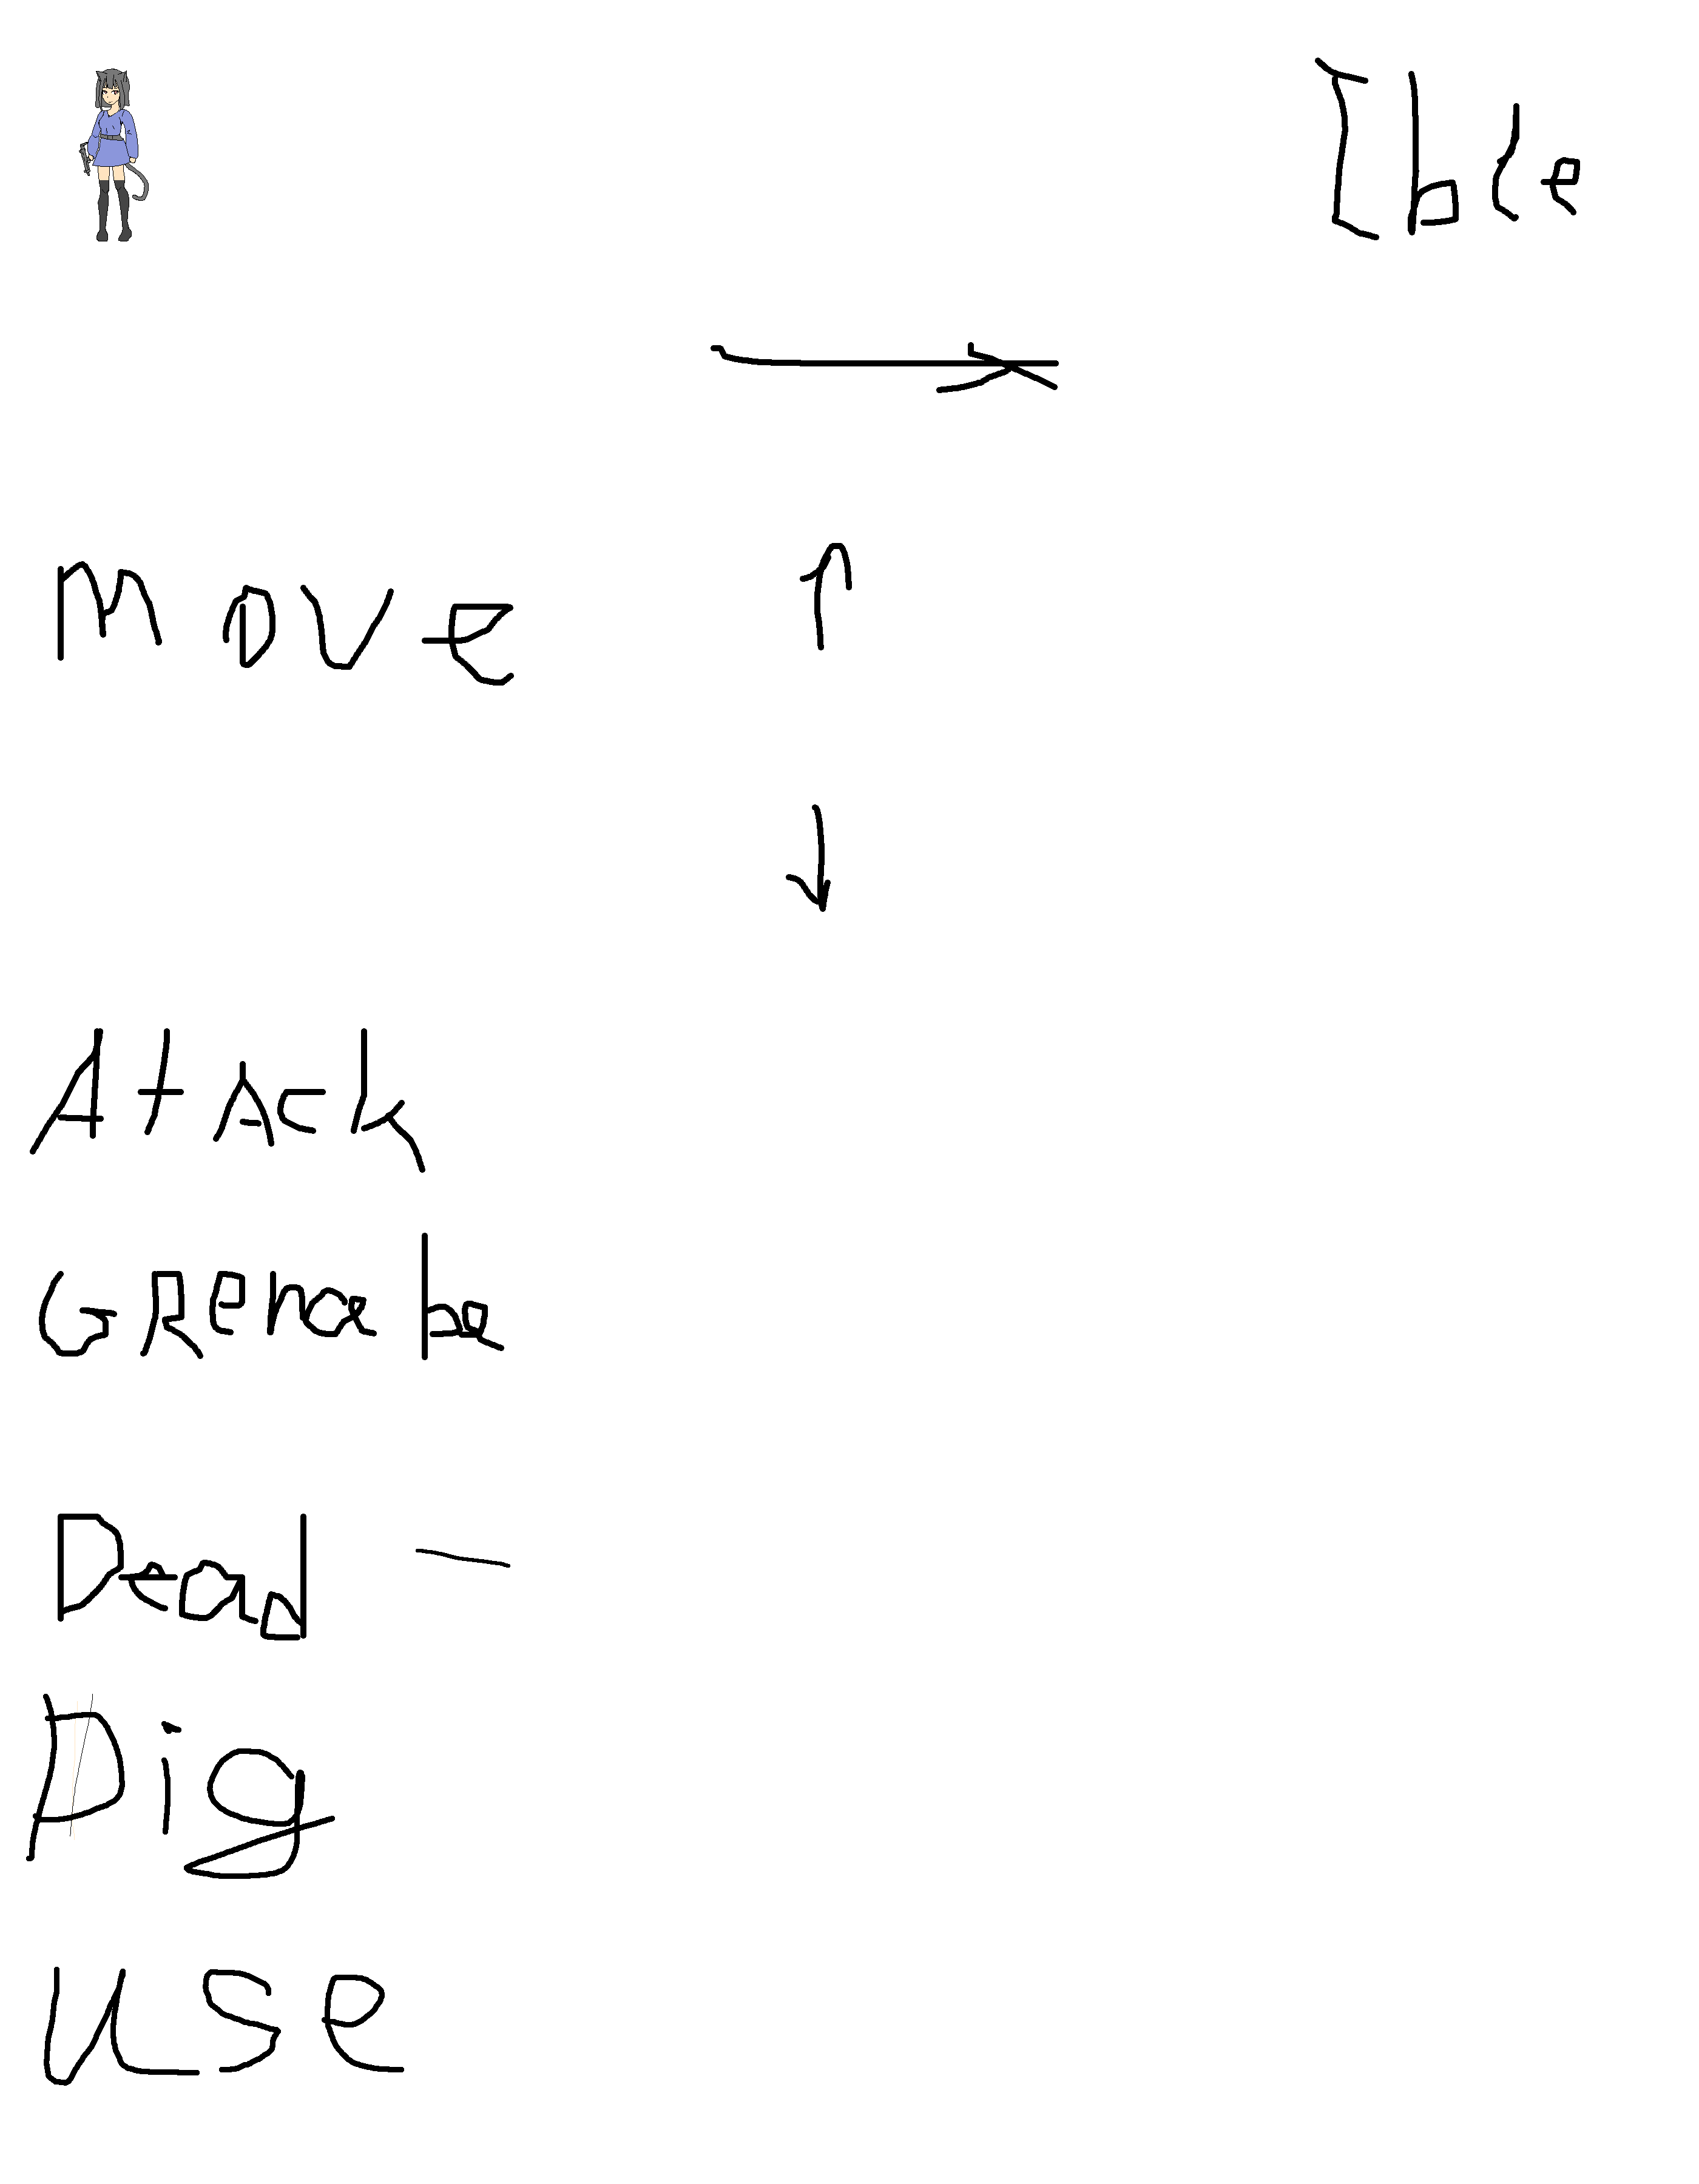 Idle
Move
Atack
GRenade
Dead
Dig
use